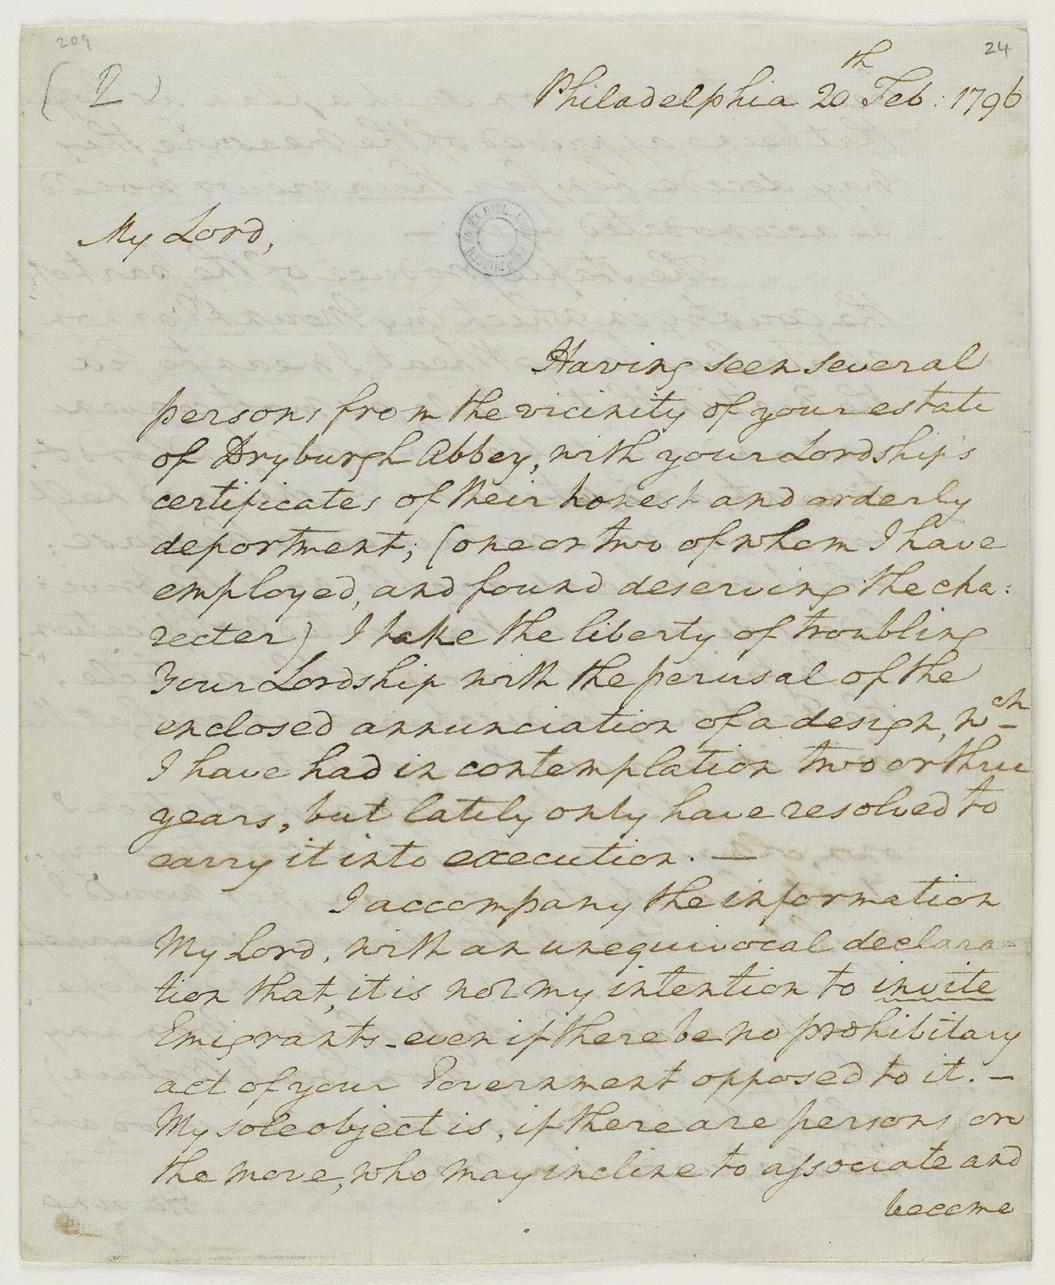 209
24
(2)
Philadelphia 20th Feb: 1796
My Lord,
Having seen several
persons from the vicinity of your estate
of Dryburgh Abbey, with your Lordship's
certificates of their honest and orderly
deportment; (one or two of whom I have
employed, and found deserving the cha:
recter) I take the liberty of troubling
Your Lordship with the perusal of the
enclosed annunciation of a design, wch
I have had in contemplation two or three
years, but lately only have resolved to
carry it into execution. —
I accompany the information
My Lord, with an unequivocal declara=
tion that, it is not my intention to invite
Emigrants - even if there be no prohibitary
act of your Government opposed to it. —
My sole object is, if there are persons on
the move, who may incline to associate and
become